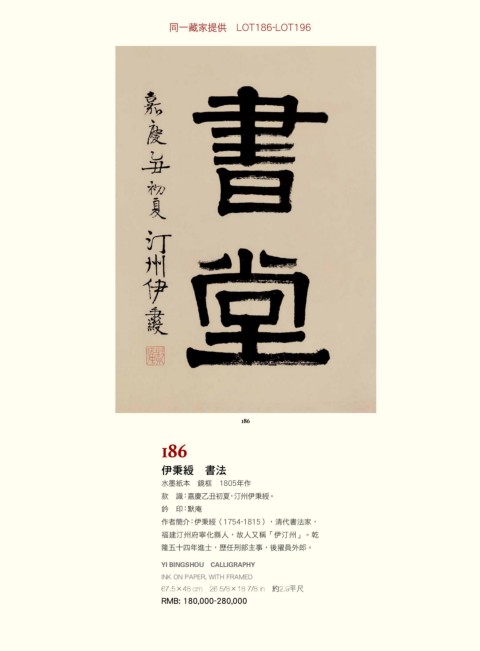 同一藏家提供　LOT186-LOT196
書堂
嘉慶乙丑初夏
汀州伊秉綬
186
186
伊秉綬　書法
水墨紙本　鏡框　1805年作
款　識：嘉慶乙丑初夏，汀州伊秉綬。
鈐　印：默庵
作者簡介：伊秉綬（1754-1815），清代書法家，
福建汀州府寧化縣人，故人又稱「伊汀州」。乾
隆五十四年進士，歷任刑部主事，後擢員外郎。
YI BINGSHOU　CALLIGRAPHY
INK ON PAPER, WITH FRAMED
67.5×48 cm　26 5/8×18 7/8 in　約2.9平尺
RMB: 180,000-280,000